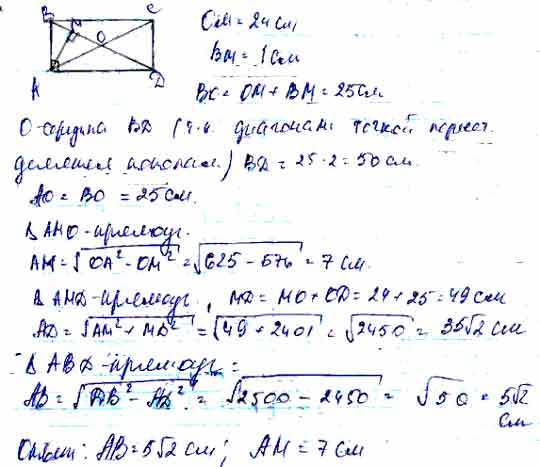 B C
M
O
A D
OM = 24 см
BM = 1 см
BO = OM + BM = 25 см
O - середина BD (т.к. диагонали точкой перес.
делятся пополам) BD = 25 · 2 = 50 см.
AO = BO = 25 см.
Δ AMO - прямоуг.
AM = √OA² - OM² = √625 - 576 = 7 см.
Δ AMD - прямоуг., MD = MO + OD = 24 + 25 = 49 см
AD = √AM² + MD² = √49 + 2401 = √2450 = 35√2 см
Δ ABD - прямоуг.:
AB = √DB² - AD² = √2500 - 2450 = √50 = 5√2
см
Ответ: AB = 5√2 см; AM = 7 см